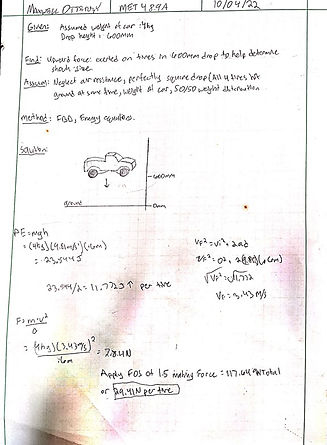 Maxwell Ottersen MET 489A 10/04/22
Given: Assumed weight of car: 4kg
Drop height = 600mm
Find: Upward force exerted on tires in 600mm drop to help determine
shock size
Assume: Neglect air resistance, perfectly square drop (All 4 tires hit
ground at same time, weight of car, 50/50 weight distribution
Method: FBD, Energy equations.
Solution:
600mm
ground
0mm
PE = mgh
= (4kg)(9.81m/s²)(.6m)
= 23.544J
23.544/2 = 11.772J ↑ per tire
F = m·v²
= (4kg)(3.43m/s)²
.6m
= 78.4N
VF² = Vi² + 2ad
VF² = 0² + 2(9.81)(0.6m)
√VF² = √11.772
VF = 3.43 m/s
Apply FOS of 1.5 making Force = 117.64N total
or 29.41N per tire